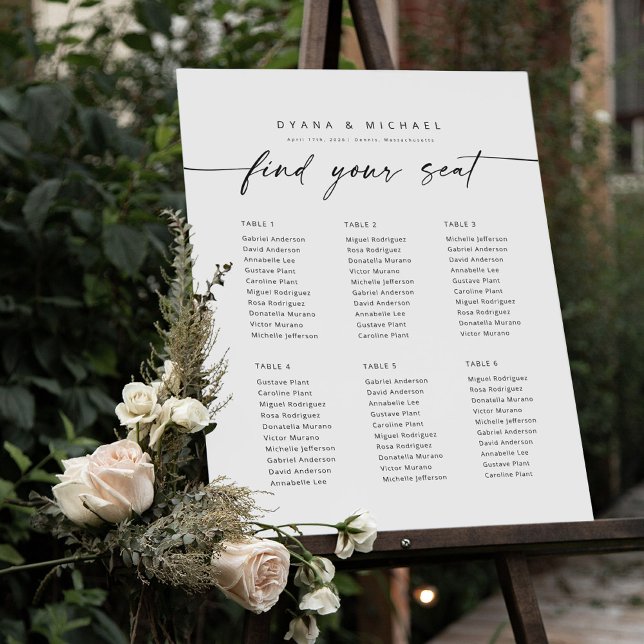 DYANA & MICHAEL
April 17th, 2026| Dennis, Massachusetts
find your seat
TABLE 1
Gabriel Anderson
David Anderson
Annabelle Lee
Gustave Plant
Caroline Plant
Miguel Rodriguez
Rosa Rodriguez
Donatella Murano
Victor Murano
Michelle Jefferson
TABLE 2
Miguel Rodriguez
Rosa Rodriguez
Donatella Murano
Victor Murano
Michelle Jefferson
Gabriel Anderson
David Anderson
Annabelle Lee
Gustave Plant
Caroline Plant
TABLE 3
Michelle Jefferson
Gabriel Anderson
David Anderson
Annabelle Lee
Gustave Plant
Caroline Plant
Miguel Rodriguez
Rosa Rodriguez
Donatella Murano
Victor Murano
TABLE 4
Gustave Plant
Caroline Plant
Miguel Rodriguez
Rosa Rodriguez
Donatella Murano
Victor Murano
Michelle Jefferson
Gabriel Anderson
David Anderson
Annabelle Lee
TABLE 5
Gabriel Anderson
David Anderson
Annabelle Lee
Gustave Plant
Caroline Plant
Miguel Rodriguez
Rosa Rodriguez
Donatella Murano
Victor Murano
Michelle Jefferson
TABLE 6
Miguel Rodriguez
Rosa Rodriguez
Donatella Murano
Victor Murano
Michelle Jefferson
Gabriel Anderson
David Anderson
Annabelle Lee
Gustave Plant
Caroline Plant